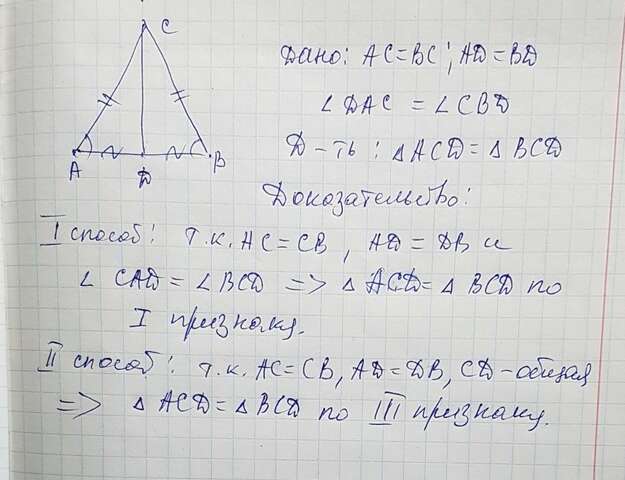 C
A
D
B
Дано: AC=BC; AD=BD
∠DAC = ∠CBD
Д-ть: △ACD=△BCD
Доказательство:
I способ: т.к. AC=CB, AD=DB и
∠CAD=∠BCD => △ACD=△BCD по
I признаку.
II способ: т.к. AC=CB, AD=DB, CD-общая
=> △ACD=△BCD по III признаку.